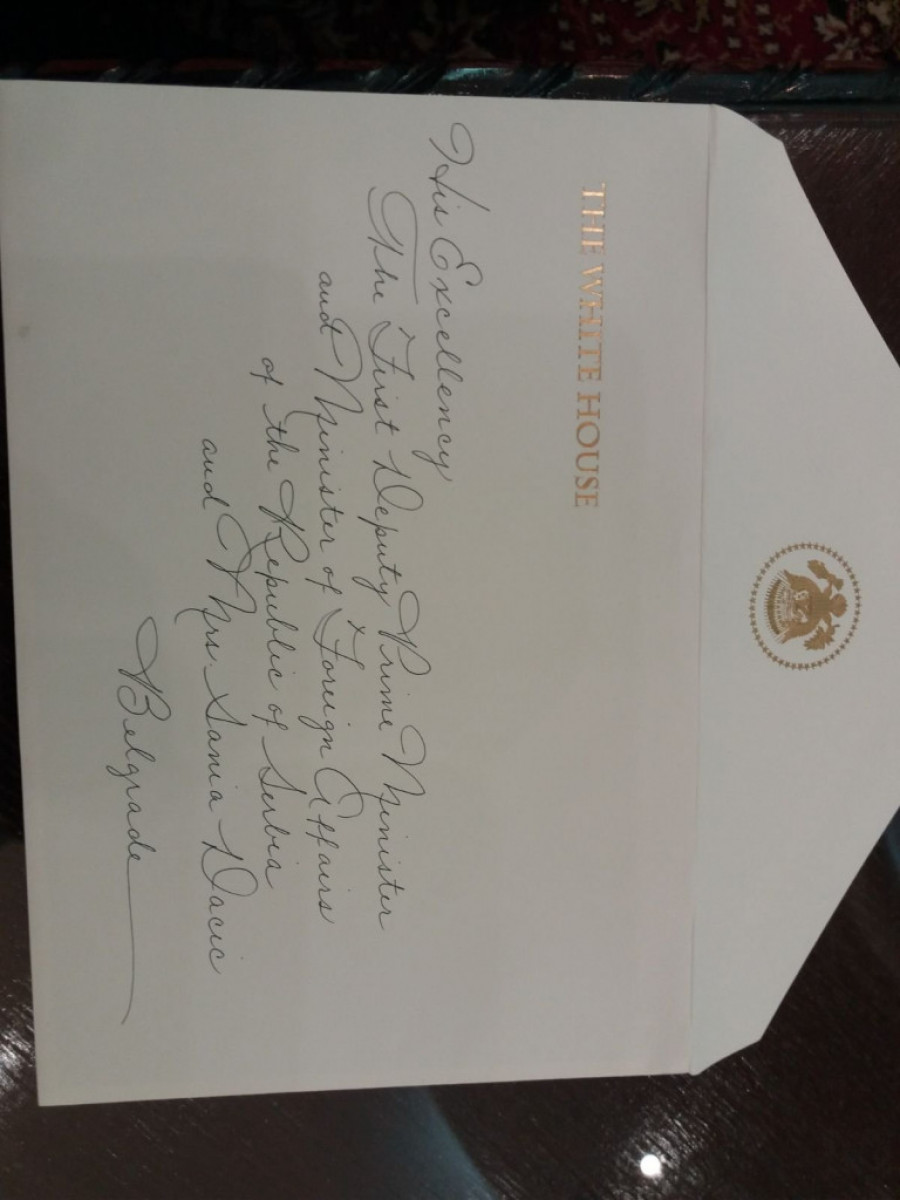 THE WHITE HOUSE
His Excellency
The First Deputy Prime Minister
and Minister of Foreign Affairs
of the Republic of Serbia
and Mrs. Sania Dacic
Belgrade